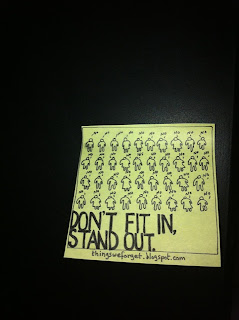 DON'T FIT IN,
STAND OUT.
thingsweforget.blogspot.com